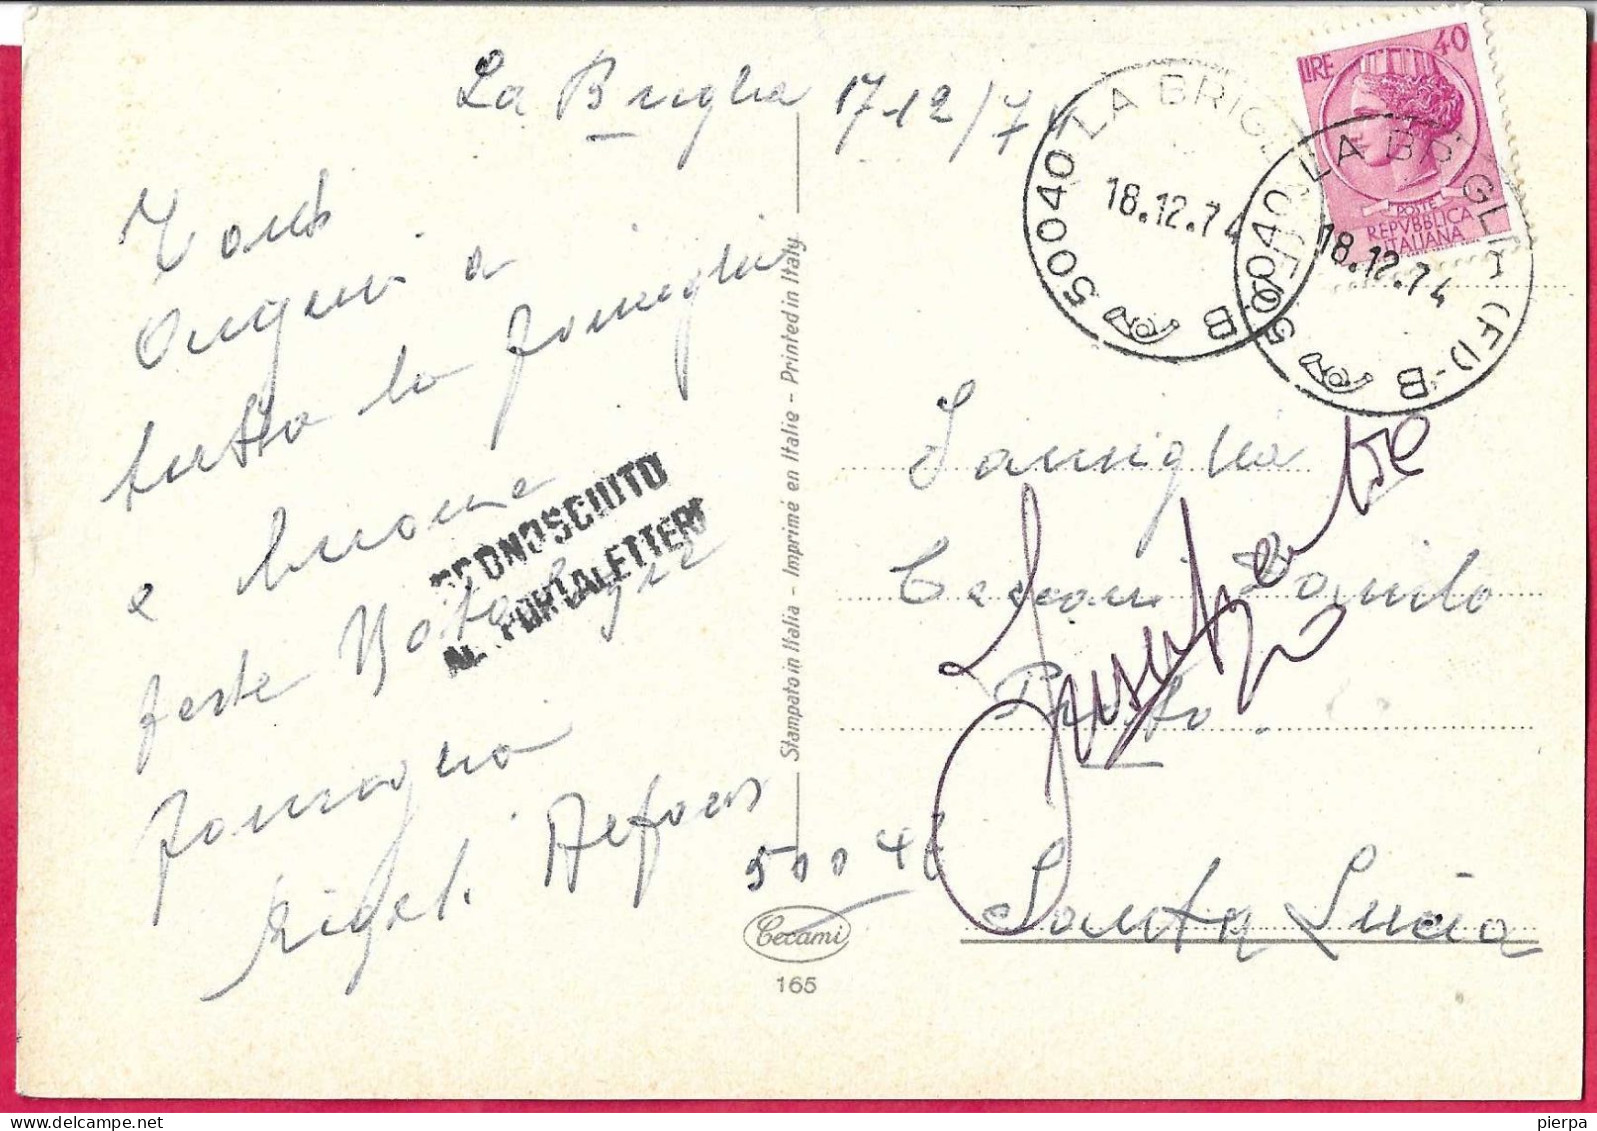 La Briglia 17-12/74
Tanti
Auguri a
tutta la famiglia
e buone
feste Natalizie
famiglia
SCONOSCIUTO
AL PORTALETTERE
Stampato in Italia - Imprimé en Italie - Printed in Italy
Cecami
165
LIRE 40
POSTE
REPVBBLICA
ITALIANA
50040 LA BRIGLIA (FI) - B
18.12.74
50040 LA BRIGLIA (FI) - B
18.12.74
Famiglia
Danilo
Prato.
Santa Lucia
5004
pierpa